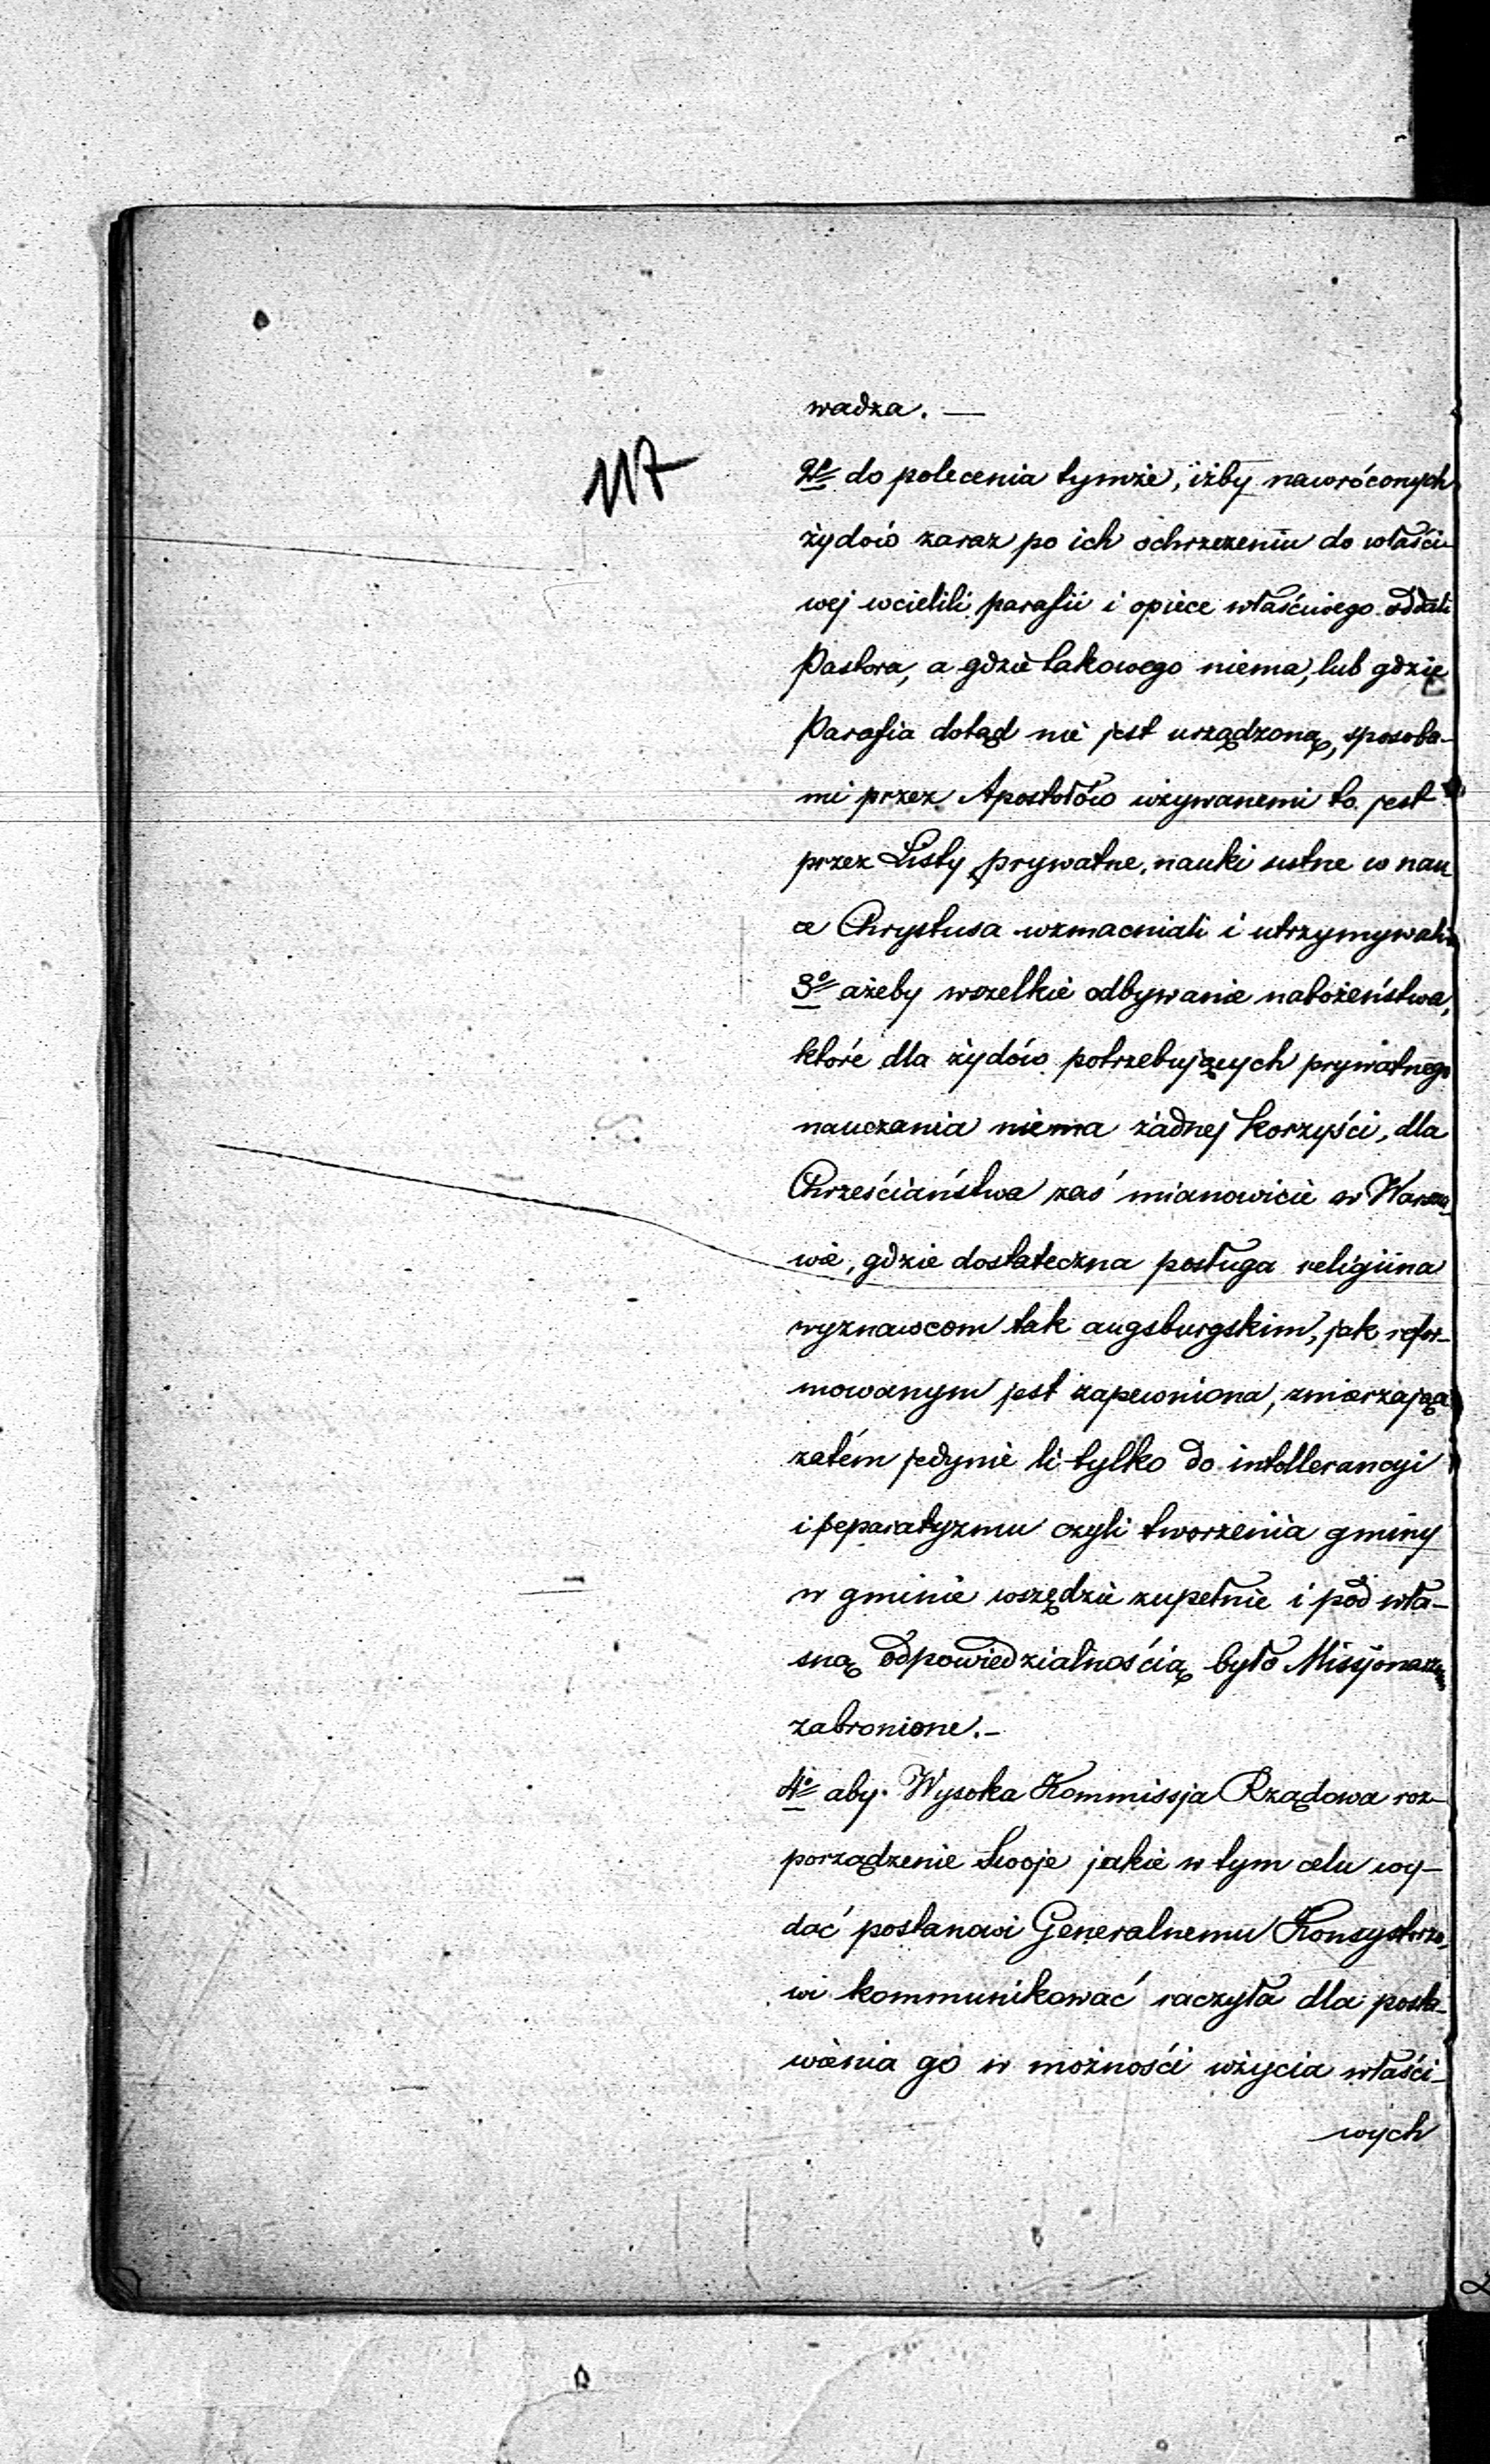 wadza. —
117
2o do polecenia tymże, iżby nawróconych
żydów zaraz po ich ochrzczeniu do właści-
wej wcielili parafii i opiece właściwego oddali
Pastora, a gdzie takowego niema, lub gdzie
Parafia dotąd nie jest urządzoną, sposoba-
mi przez Apostołów używanemi to jest
przez Listy prywatne, nauki ustne w nau
ce Chrystusa wzmacniali i utrzymywali
3o ażeby wszelkie odbywanie nabożeństwa,
które dla żydów potrzebujących prywatnego
nauczania niema żadnej korzyści, dla
Chrześciaństwa zaś mianowicie w Warsza
wie, gdzie dostateczna posługa religiina
wyznawcom tak augsburgskim, jak refor-
mowanym jest zapewniona, zmierzające
zatém jedynie li tylko do intollerancyi
i separatyzmu czyli tworzenia gminy
w gminie wszędzie zupełnie i pod wła-
sną odpowiedzialnością było Missjonarzom
zabronione.-
4o aby Wysoka Kommissja Rządowa roz-
porządzenie Swoje jakie w tym celu wy-
dać postanowi Generalnemu Konsystorzo-
wi kommunikować raczyła dla posta-
wienia go w możności użycia właści-
wych